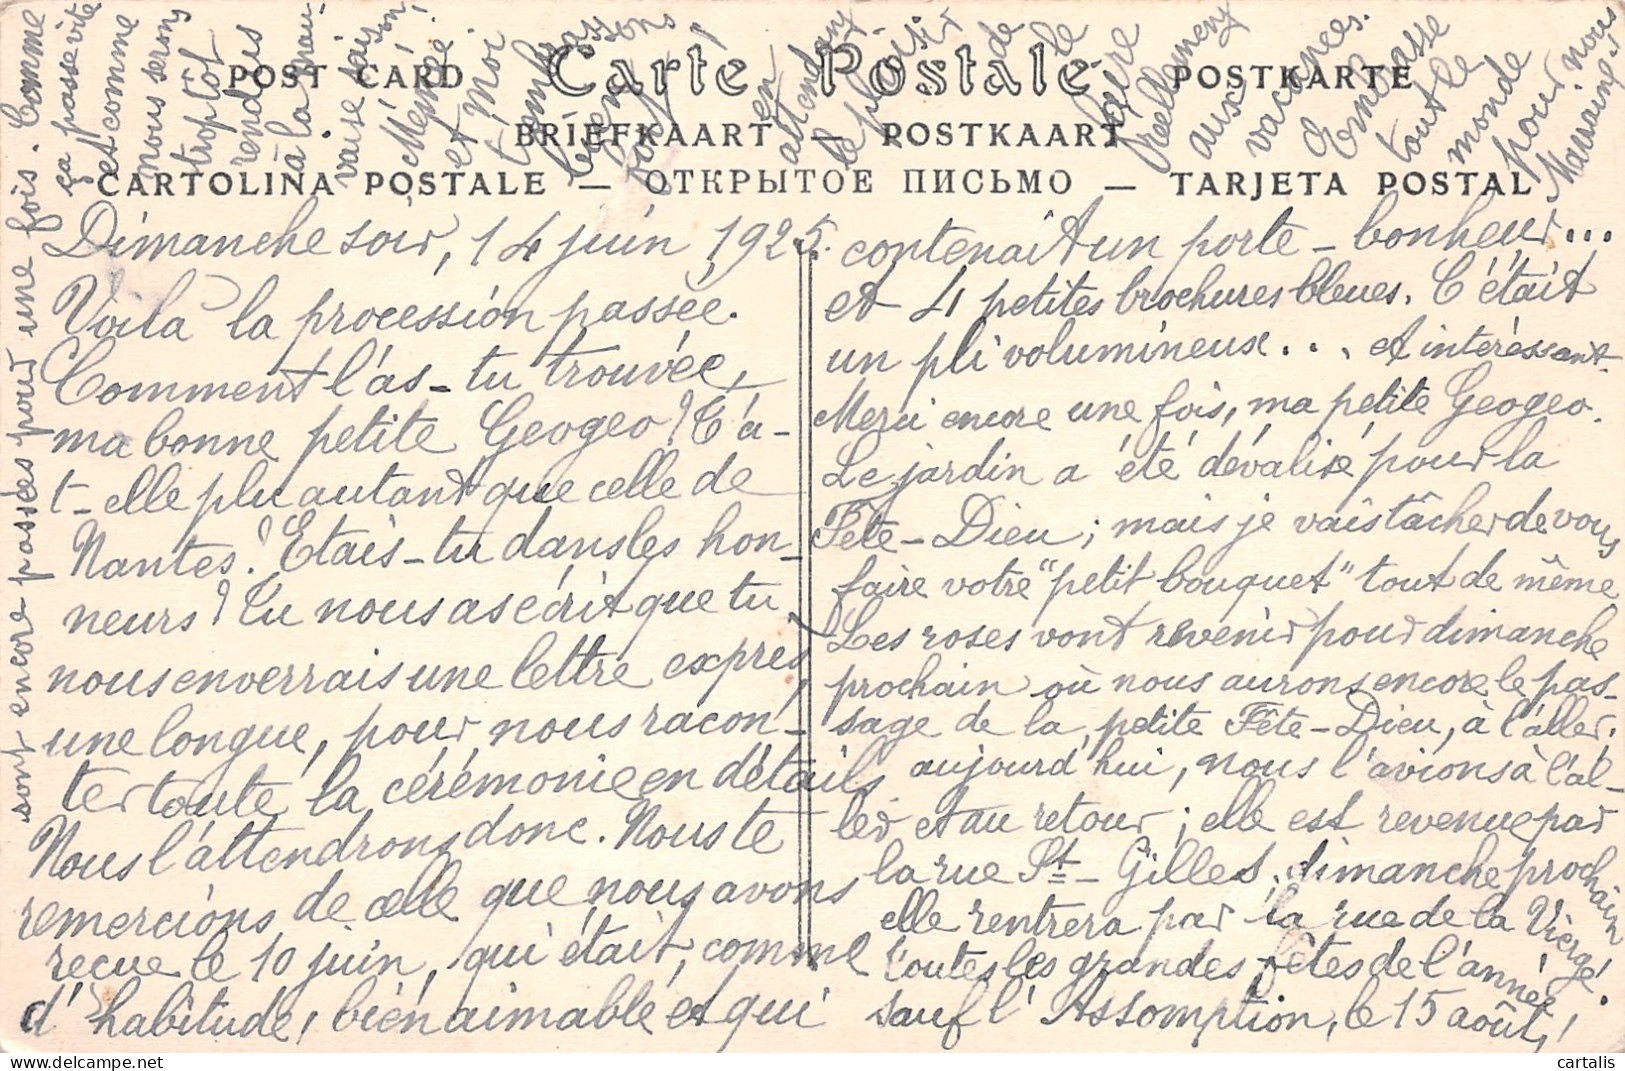 POST CARD Carte Postale POSTKARTE
BRIEFKAART — POSTKAART
CARTOLINA POSTALE — ОТКРЫТОЕ ПИСЬМО — TARJETA POSTAL
Dimanche soir, 14 juin 1925.
Voilà la procession passée.
Comment l'as-tu trouvée,
ma bonne petite Geogeo? T'a-
t-elle plu autant que celle de
Nantes? Etais-tu dans les hon-
neurs? Tu nous as écrit que tu
nous enverrais une lettre exprès,
une longue, pour nous racon-
ter toute la cérémonie en détails
Nous l'attendrons donc. Nous te
remercions de celle que nous avons
reçue le 10 juin, qui était, comme
d'habitude, bien aimable et qui
contenait un porte-bonheur...
et 4 petites brochures bleues. C'était
un pli volumineux... et intéressant.
Merci encore une fois, ma petite Geogeo.
Le jardin a été dévalisé pour la
Fête-Dieu; mais je vais tâcher de vous
faire votre "petit bouquet" tout de même
Les roses vont revenir pour dimanche
prochain où nous aurons encore le pas-
sage de la petite Fête-Dieu, à l'aller.
aujourd'hui, nous l'avions à l'al-
ler et au retour; elle est revenue par
la rue St-Gilles, dimanche prochain
elle rentrera par la rue de la Vierge!
Toutes les grandes fêtes de l'année
sauf l'Assomption, le 15 août,
sont encore passées pour une fois. Comme
ça passe vite
et comme
nous serons
trop tôt
rendus
à la mau-
vaise saison,
Mémé,
et moi
t'embrassons
bien
fort
en
attendant
le plaisir
de
le
faire
réellement
aux
vacances.
Embrasse
tout le
monde
pour nous